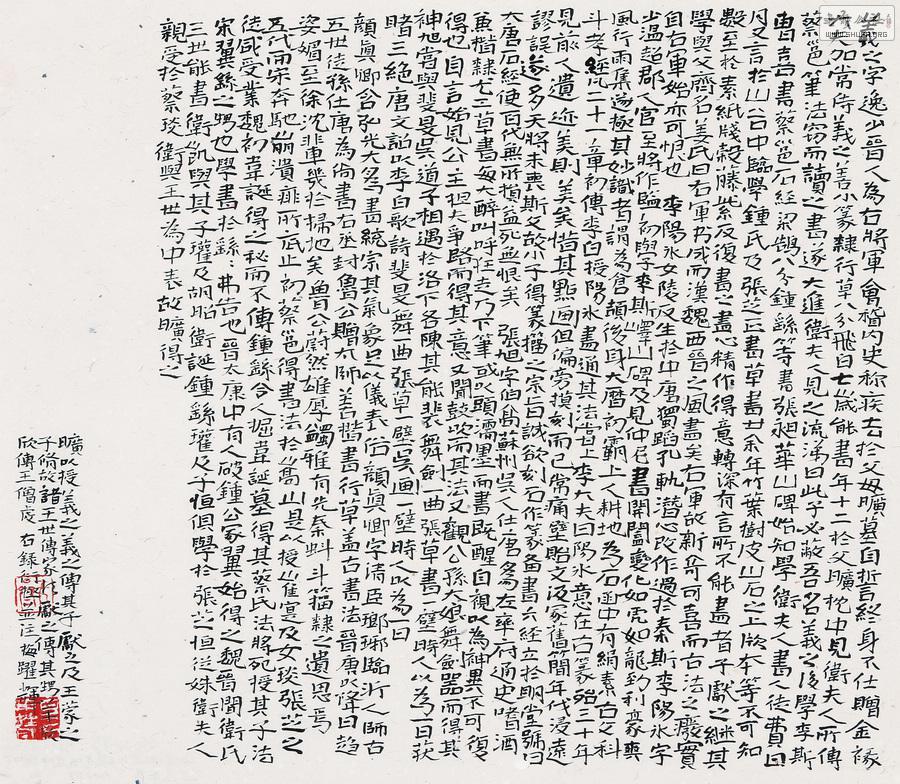 羲之字逸少晉人為右將軍會稽内史称疾去於父母曠墓自誓終身不仕贈金祿
大夫加常侍羲之善小篆隸行草八分飛白七歲能書年十二於父曠枕中見衛夫人所傳
蔡邕筆法窃而讀之書遂大進衛夫人見之流涕曰此子必蔽吾名羲之後學李斯
曹喜書蔡邕石經梁鵠八分鍾繇等書張昶華山碑始知學衛夫人書徒費日
月又言於山谷中臨學鍾氏及張芝二書草書廿余年竹葉樹皮山石之上版本等不可知
數至於素紙牋縠藤紫反復書之盡心精作得意轉深有言所不能盡者子獻之継其
學與父齊名姜氏曰右軍書成而漢魏西晉之風盡矣右軍故新奇可喜而古法之廢實
自右軍始亦可恨也 李陽氷女陵反生於中唐獨蹈孔軌潛心改作過於秦斯李陽氷字
少溫趙郡人官至將作監初與學李斯嶧山碑及見仲尼書開闔變化如虎如龍到利豪爽
風行雨集極其妙識者謂為倉頡後身大曆初霸上人耕地為石函中有絹素古文科
斗孝經凡二十一章初傳李白授陽氷盡通其法皆上李大夫曰陽氷意在古篆殆三十年
見前人遺迹美則美矣惜其點画但偏旁摸刻而已常痛壁貽文汲冢舊簡年代浸遠
謬誤遂多天將未喪斯文故小子得篆籀之宗旨誠欲刻石作篆备書六經立於明堂號曰
大唐石經使百代無所損益死無恨矣 張旭字伯高蘇州吳人仕唐為左率府通史嗜酒
兼楷隸尤工草書每大醉叫呼狂走乃下筆或以頭濡墨而書既醒自視以為神異不可復
得也自言始見公主担夫争路而得其意又聞鼓吹而其法又觀公孫大娘舞劍器而得其
神旭嘗與裴旻吳道子相遇於洛下各陳其能裴舞劍一曲張草書一壁時人以為一日获
睹三絕唐文詔以李白歌詩裴旻舞一曲張草一壁吳画一壁時人以為一曰
顏真卿含弘光大為書統宗其氣象足以儀表俗顏真卿字清臣瑯琊臨沂人師古
五世從孫仕唐為尚書右丞封魯公贈太師善楷書行草盖古書法晉唐以降日趋
姿媚至徐沈輩幾於掃地矣魯公蔚然雄厚獨雅有先秦蝌斗籀隸之遺思焉
五代而宋奔馳崩潰靡所底止初蔡邕得書法於嵩山是以授崔寔及女琰張芝之
徒咸受業魏初韋誕得之秘而不傳鍾繇令人掘韋誕墓得其蔡氏法將死授其子法
宋翼繇之甥也學書於繇:弗告也晉太康中有人破鍾公冢翼始得之魏晉間衛氏
三世能書衛凱與其子瓘及胡昭衛誕鍾繇瓘及子恒但學於張芝恒從妹衛夫人
親受於蔡琰衛與王世為中表故曠得之
曠以授羲之羲之傳其子獻之及王家之
子脩故諸王世傳家材獻之傳其甥羊欣
欣傳王僧虔右錄衍極並注梅躍輝